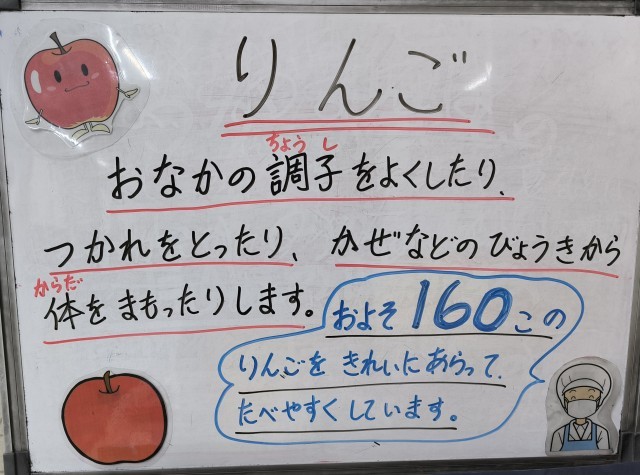 りんご
ちょうし
おなかの調子をよくしたり、
つかれをとったり、かぜなどのびょうきから
からだ
体をまもったりします。
およそ160この
りんごをきれいにあらって、
たべやすくしています。